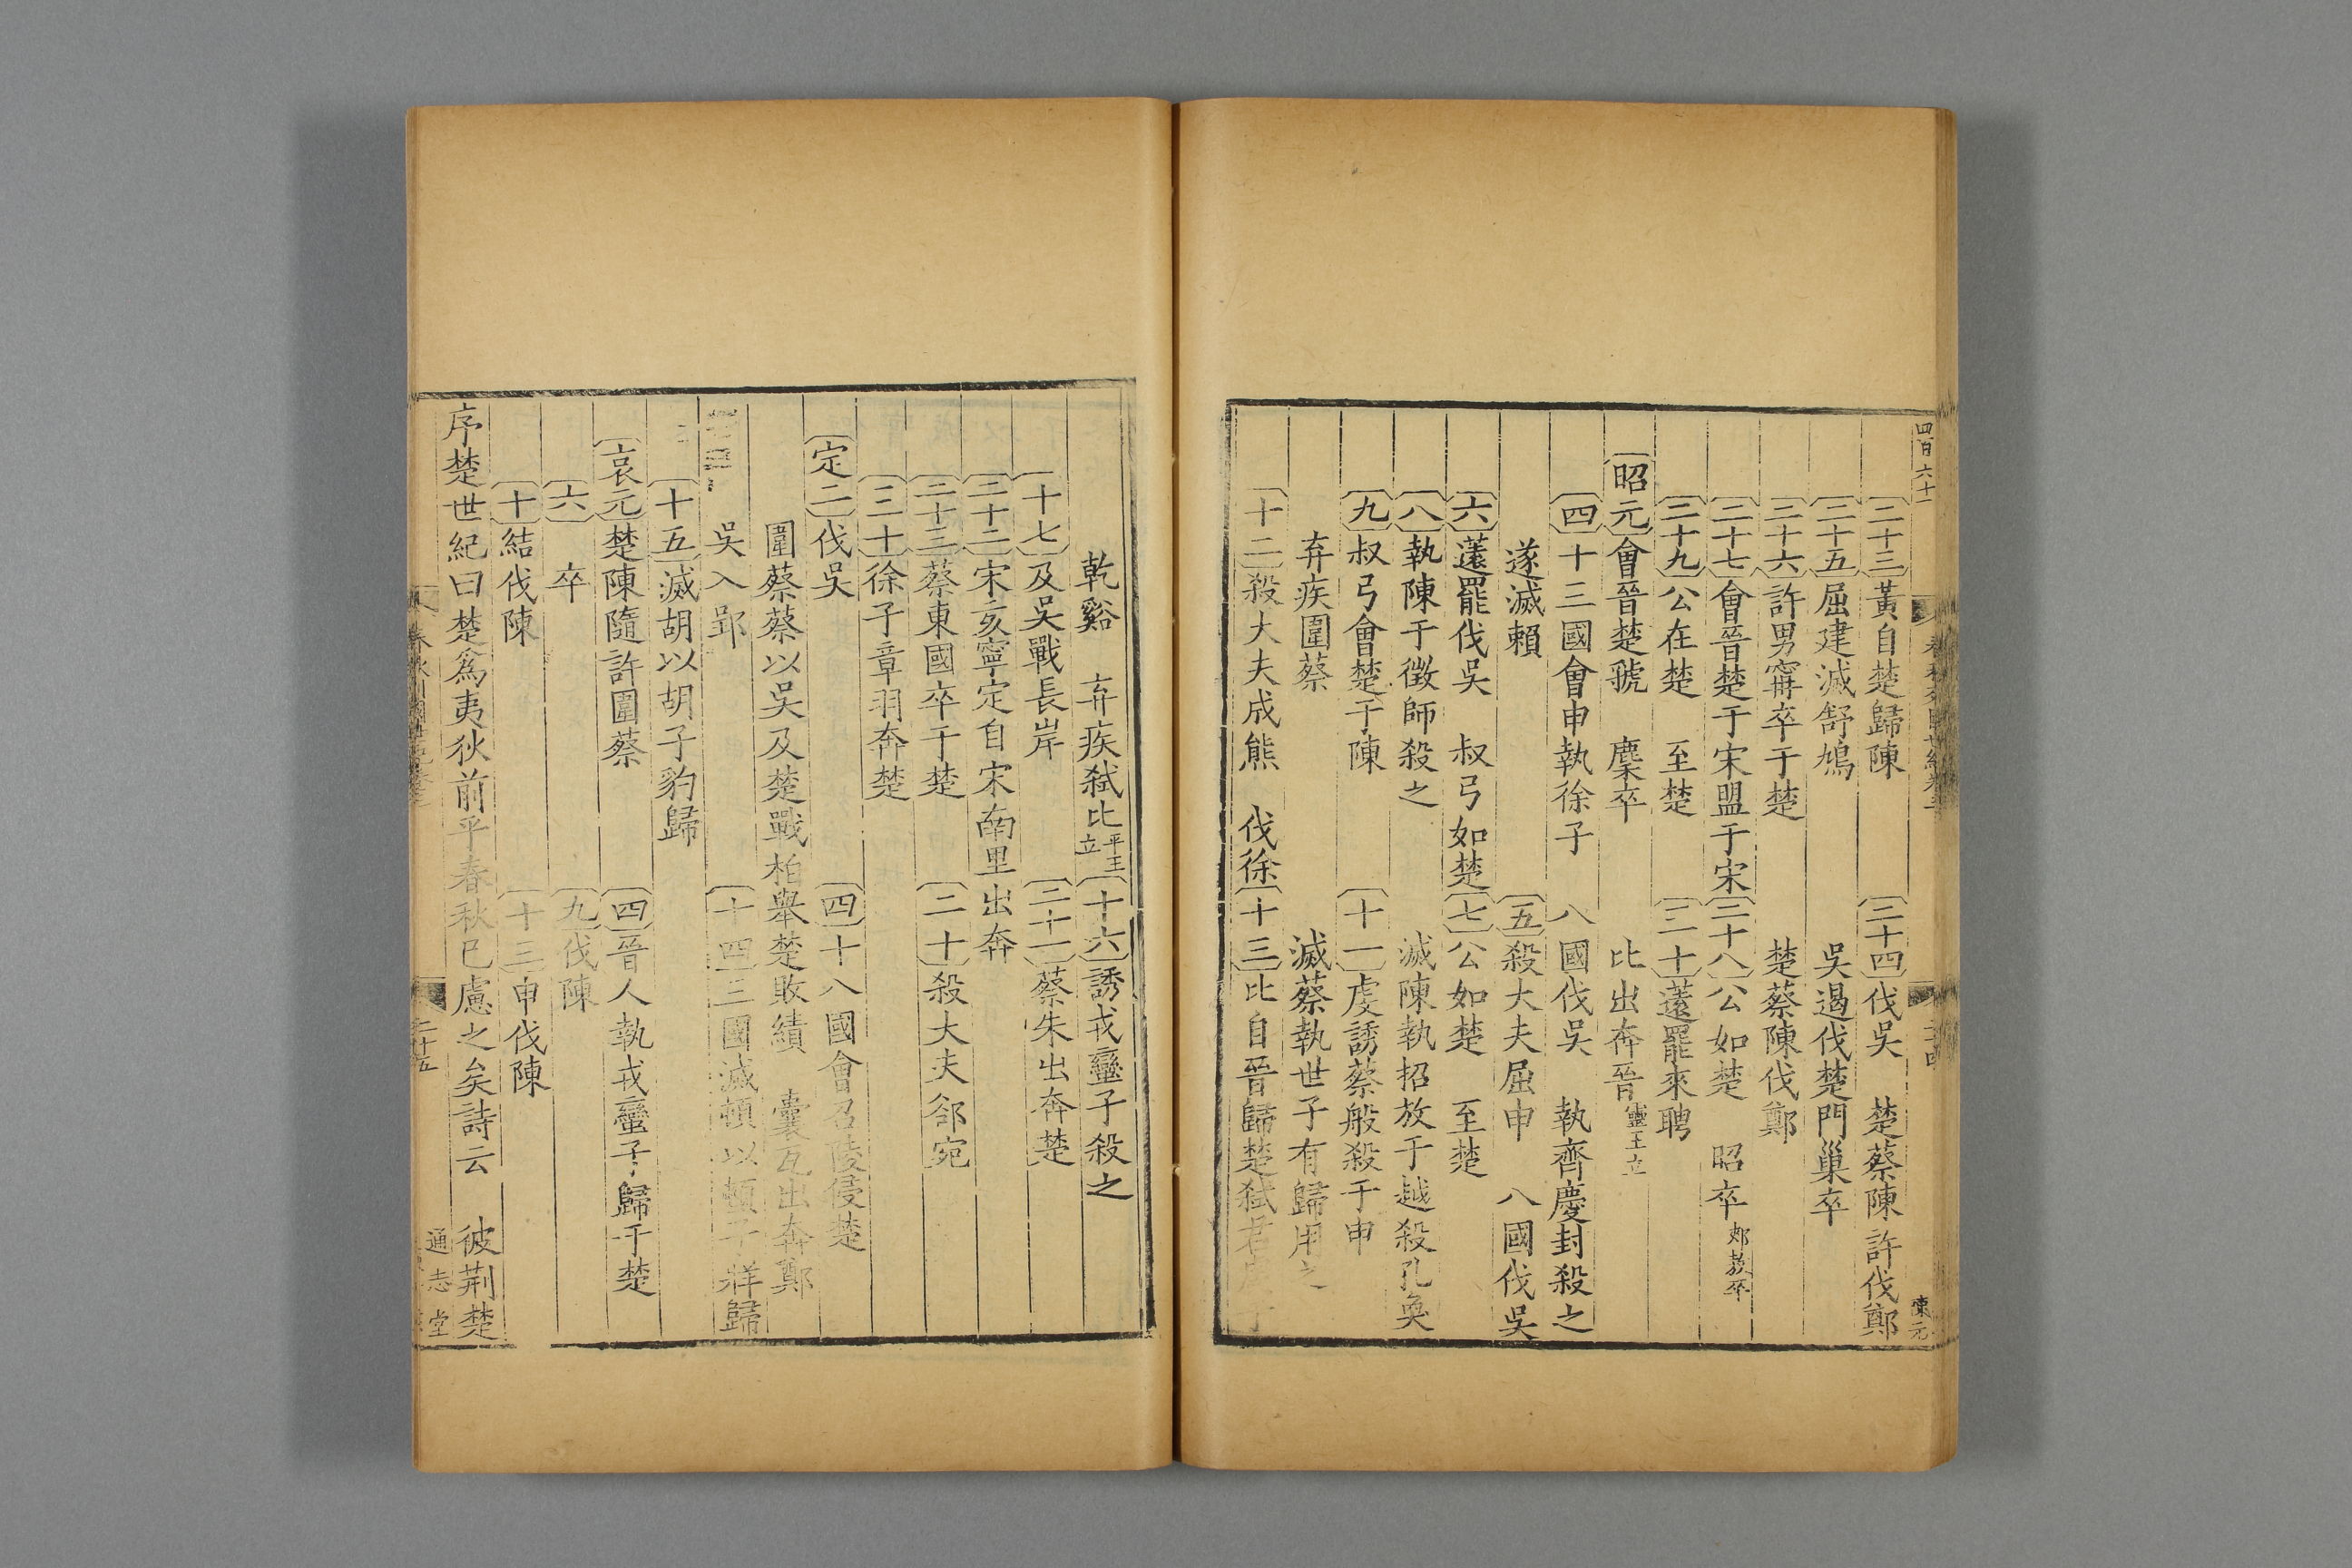 四百六十一
陳元
二十三黃自楚歸陳 二十四伐吳 楚蔡陳許伐鄭
二十五屈建滅舒鳩 吳遏伐楚門巢卒
二十六許男甯卒于楚 楚蔡陳伐鄭
二十七會晉楚于宋盟于宋二十八公如楚 昭卒郟敖卒
二十九公在楚 至楚 三十薳罷來聘
昭元會晉楚虢 麇卒 比出奔晉靈王立
四十三國會申執徐子 八國伐吳 執齊慶封殺之
遂滅賴 五殺大夫屈申 八國伐吳
六薳罷伐吳 叔弓如楚七公如楚 至楚
八執陳于徵師殺之 滅陳執招放于越殺孔奐
九叔弓會楚于陳 十一虔誘蔡般殺于申
弃疾圍蔡 滅蔡執世子有歸用之
十二殺大夫成熊 伐徐十三比自晉歸楚弒君
乾谿 弃疾弒比平王立十六誘戎蠻子殺之
十七及吳戰長岸 二十一蔡朱出奔楚
二十二宋亥寧定自宋南里出奔
二十三蔡東國卒于楚 二十殺大夫郤宛
三十徐子章羽奔楚
定二伐吳 四十八國會召陵侵楚
圍蔡蔡以吳及楚戰柏舉楚敗績 囊瓦出奔鄭
吳入郢 十四三國滅頓以頓子牂歸
十五滅胡以胡子豹歸
哀元楚陳隨許圍蔡 四晉人執戎蠻子歸于楚
六 卒 九伐陳
十結伐陳 十三申伐陳
序楚世紀曰楚為夷狄前乎春秋已慮之矣詩云 彼荆楚
二十五
通志堂